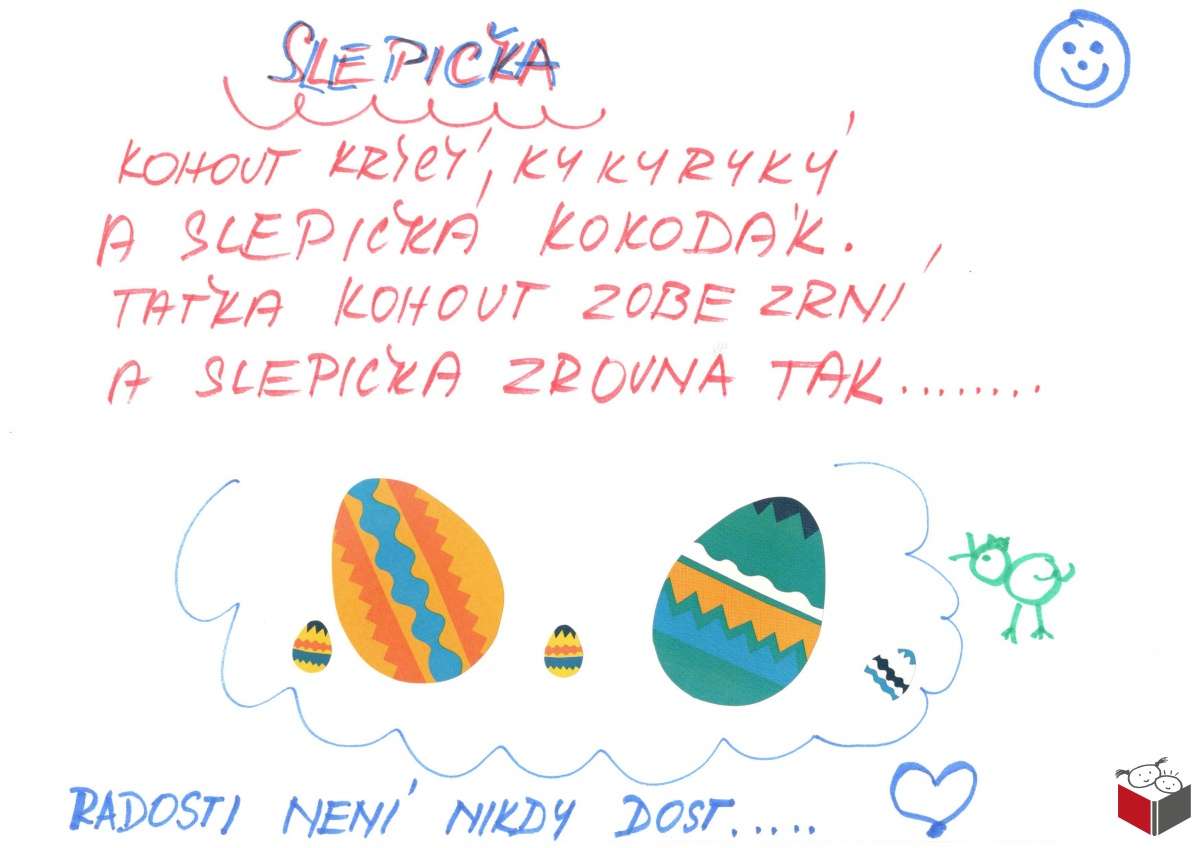 SLEPIČKA
KOHOUT KRYČÝ, KYKYRYKÝ
A SLEPIČKÁ KOKODÁK.
TAŤKA KOHOUT ZOBE ZRNÍ
A SLEPIČKA ZROVNA TAK........
RADOSTI NENÍ NIKDY DOST.....